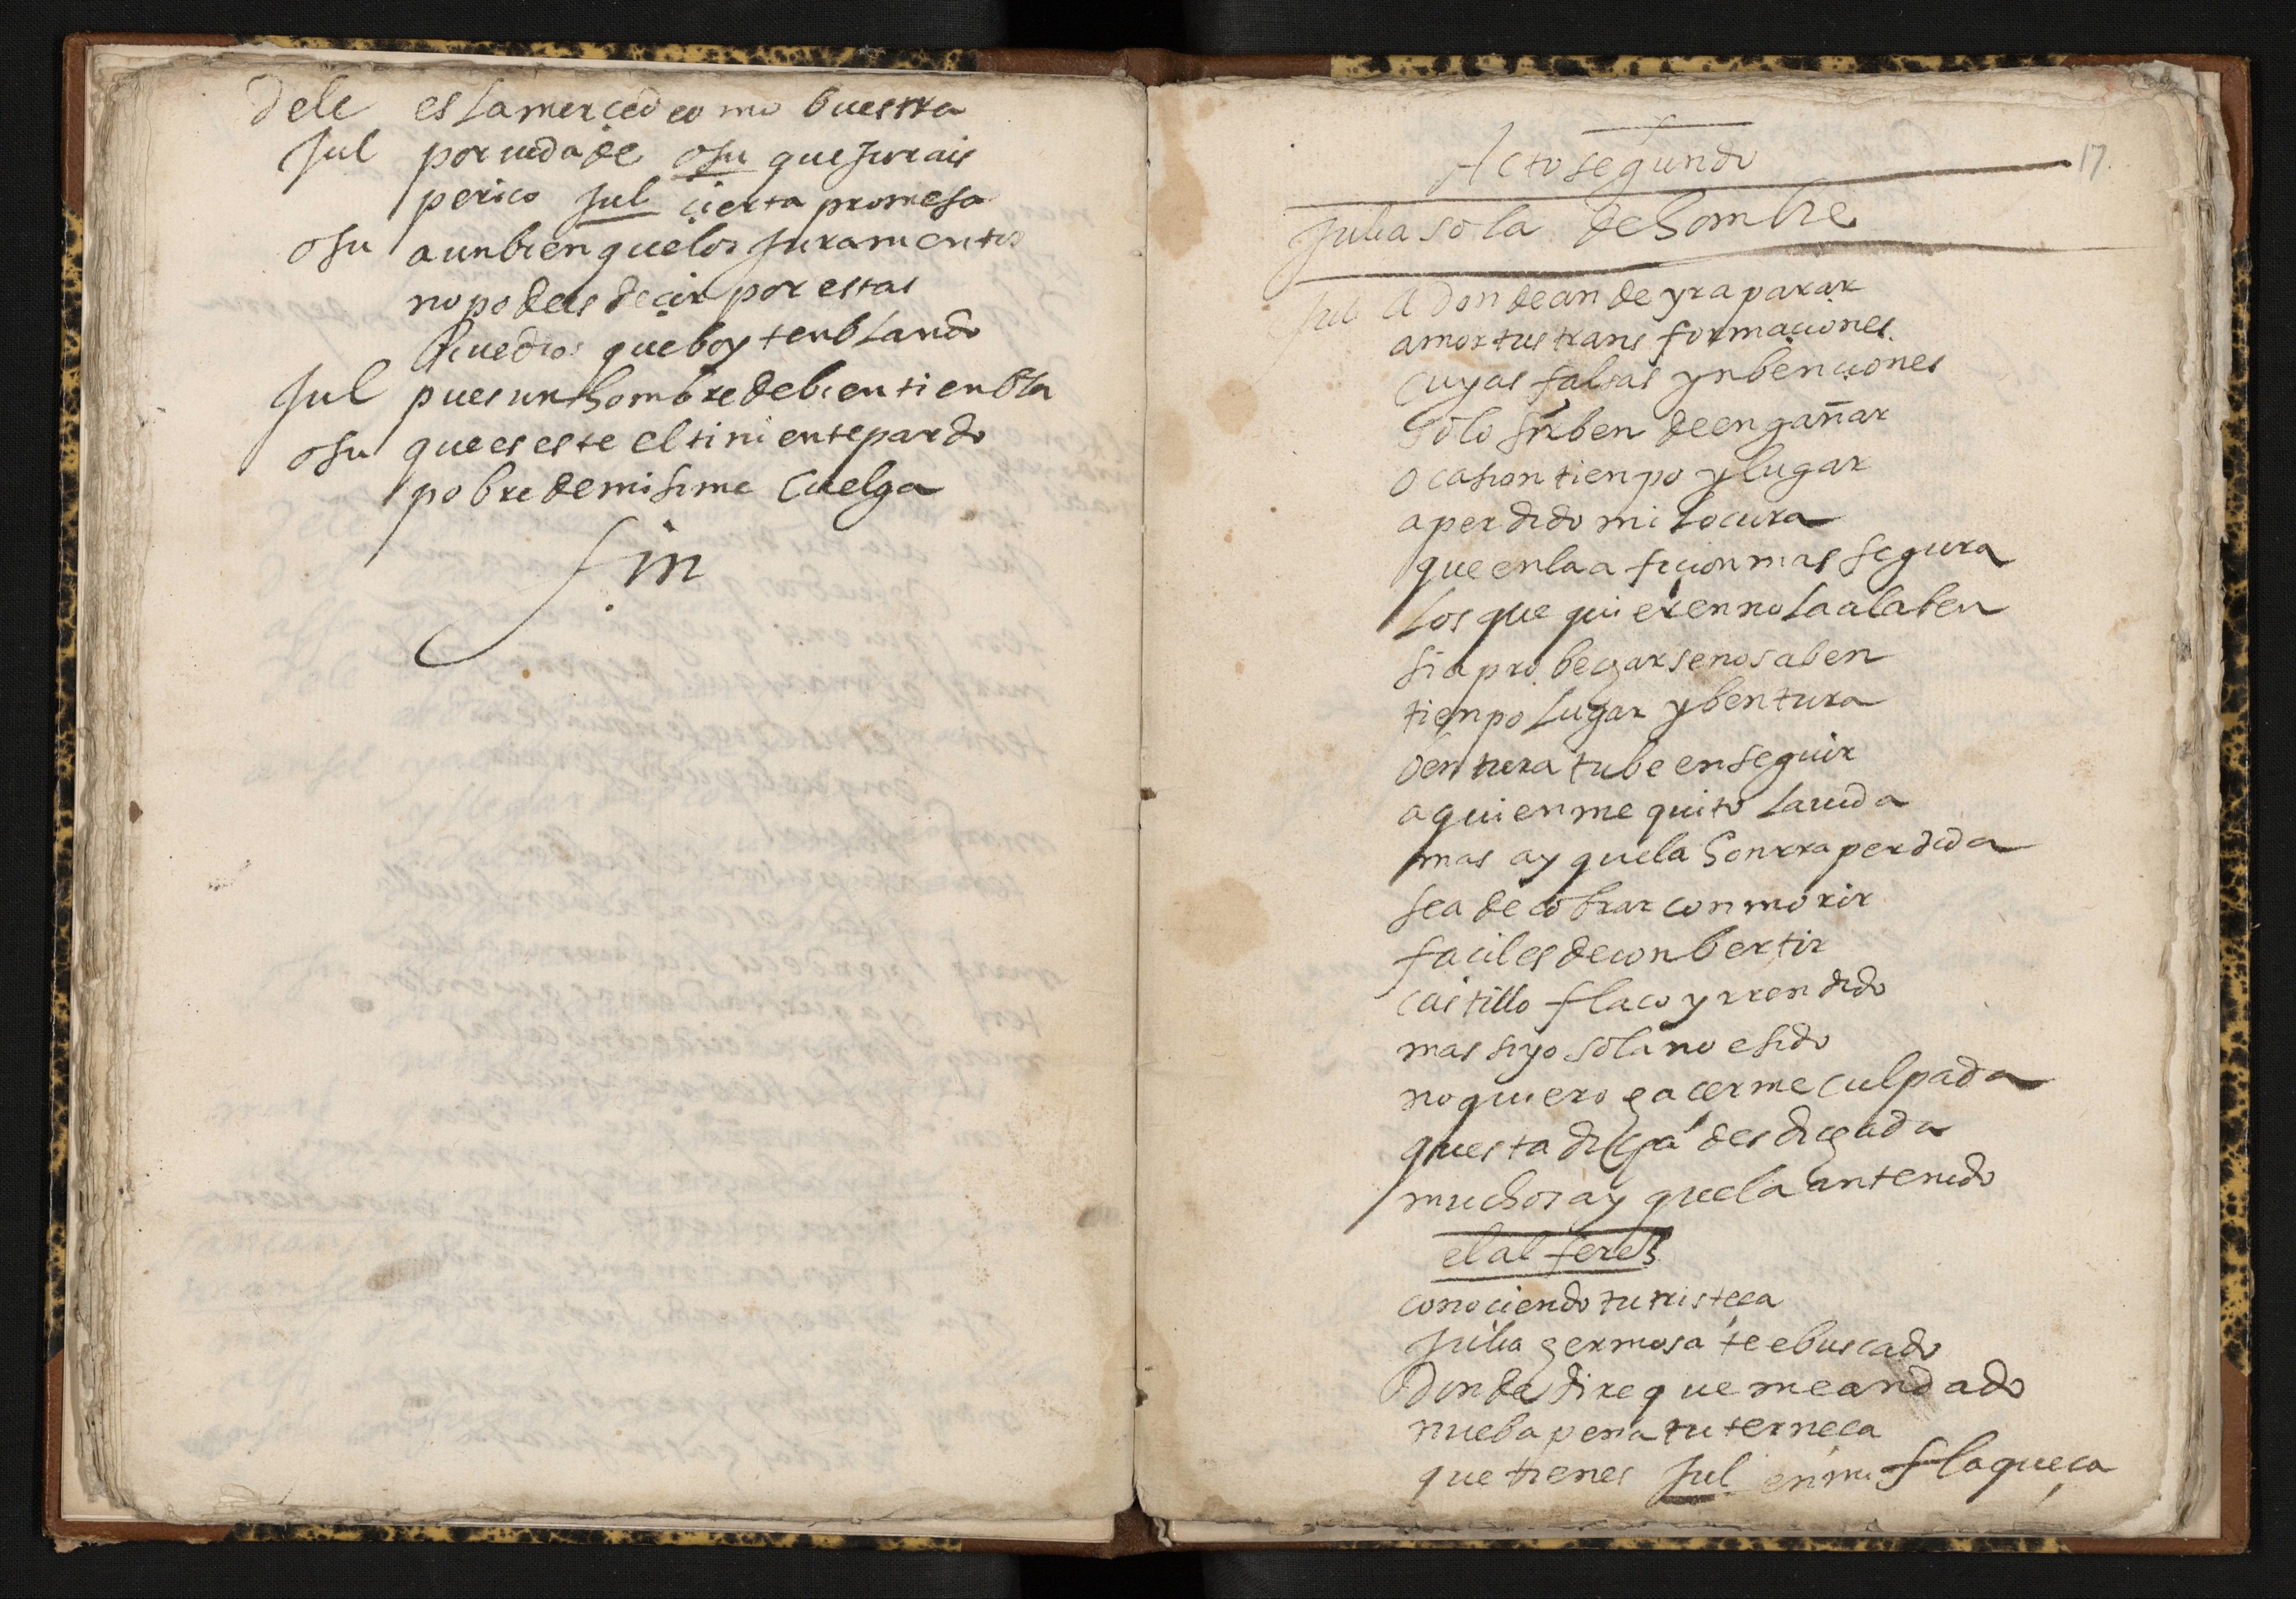 dele es la merced como buestra
Jul por uida de osu que jurais
perico Jul cierta promesa
osu aun bien que los juramentos
no podeis decir por estas
biue dios que boy tenblando
Jul pues un hombre de bien tienbla
osu que es este el tiniente pardo
pobre de mi si me cuelga
fin
17.
Acto segundo
Julia sola de hombre
Jul a donde an de yr a parar
amor tus transformaciones
cuyas falsas ynbenciones
solo sirben de engañar
ocasion tienpo y lugar
a perdido mi locura
que en la aficion mas segura
los que quieren no la alaben
si aprobechar se no saben
tienpo lugar y bentura
bentura tube en seguir
a quien me quito la uida
mas ay que la honrra perdida
se a de cobrar con morir
facil es de conbertir
castillo flaco y rrendido
mas si yo sola no e sido
no quiero hacerme culpada
questa dicha desdichada
muchos ay que la an tenido
el alferes
conociendo tu tristeça
Julia hermosa te e buscado
donde dire que me an dado
nueba pena tu terneça
que tienes Jul en mi flaqueça